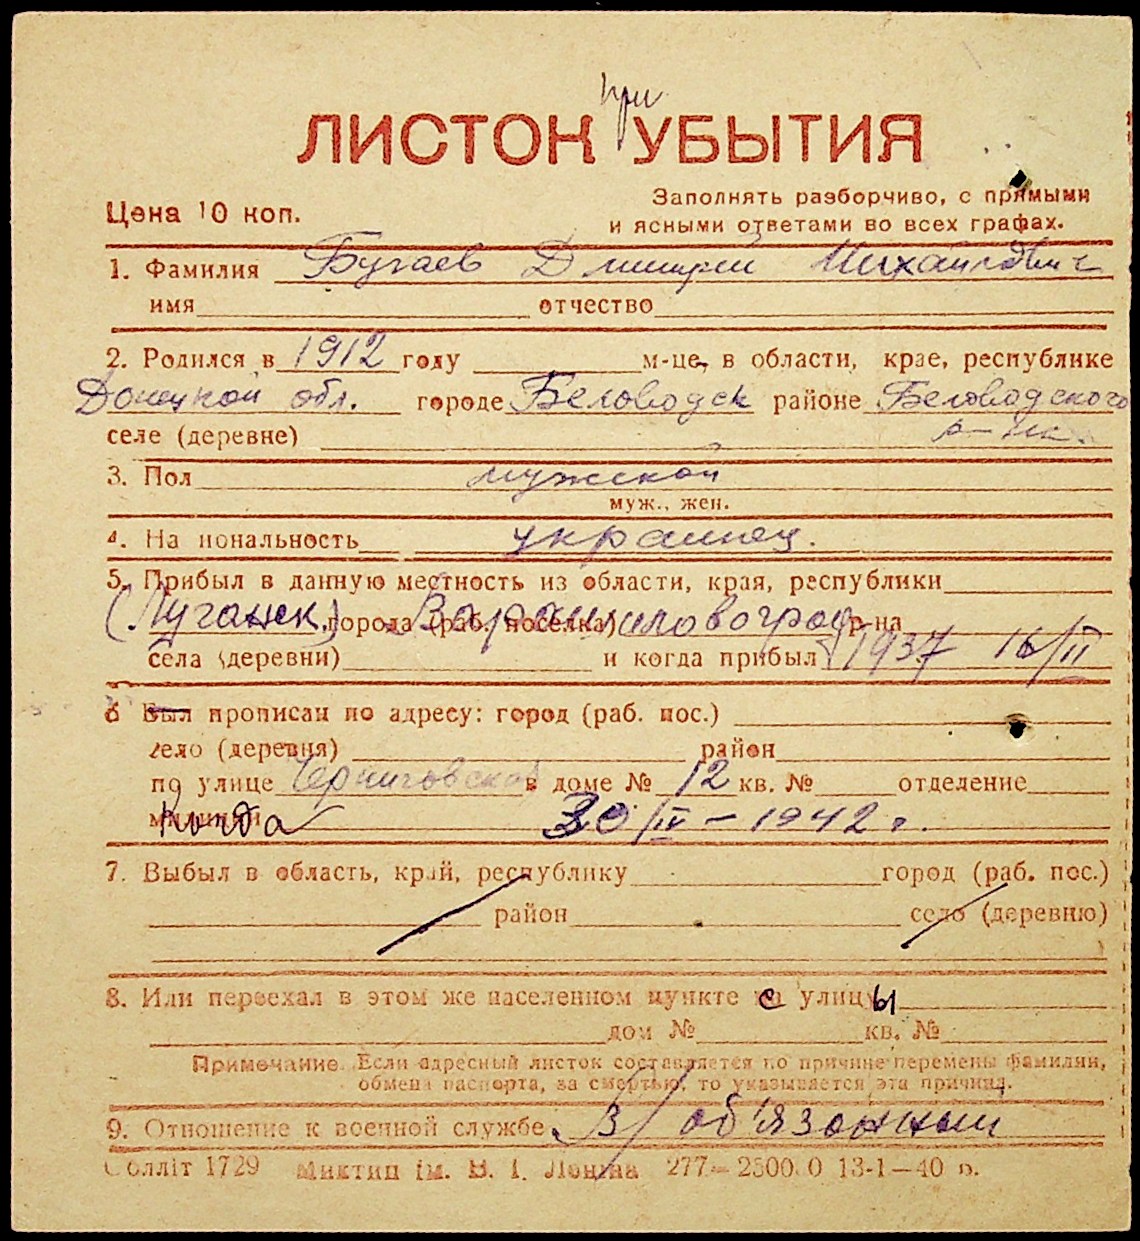 при
ЛИСТОК УБЫТИЯ
Цена 10 коп.
Заполнять разборчиво, с прямыми
и ясными ответами во всех графах.
1. Фамилия Бугаев Дмитрий Михайлович
имя отчество
2. Родился в 1912 году м-це, в области, крае, республике
Донецкой обл. городе Беловодск районе Беловодского
селе (деревне) р-на.
3. Пол мужской
муж., жен.
4. Национальность украинец.
5. Прибыл в данную местность из области, края, республики
(Луганск) города (раб. поселка) Ворошиловоград р-на
села (деревни) и когда прибыл 1937 16/II
6 Был прописан по адресу: город (раб. пос.)
село (деревня) район
по улице Черниговской доме № 12 кв. № отделение
милиции Когда 30/IV – 1942 г.
7. Выбыл в область, край, республику город (раб. пос.)
район село (деревню)
8. Или переехал в этом же населенном пункте с улицы
дом № кв. №
Примечание. Если адресный листок составляется по причине перемены фамилии,
обмена паспорта, за смертью, то указывается эта причина.
9. Отношение к военной службе В/об'язанный
Облліт 1729 Миктип ім. В. І. Леніна 277—25000 13-1—40 р.